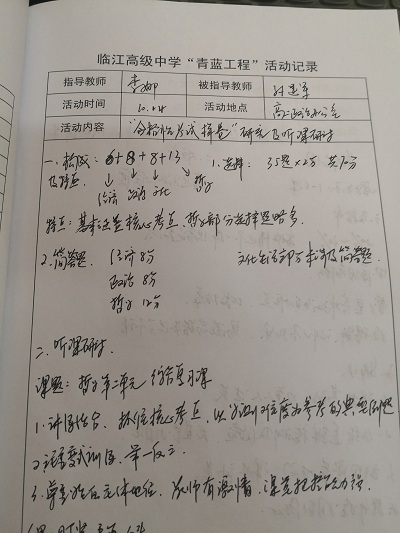 临江高级中学“青蓝工程”活动记录
指导教师 李娜 被指导教师
活动时间 活动地点 高二政治办公室
活动内容 “合格性考试样卷”研究及听课研讨
一、构成: 6+8+8+13 1.选择: 35题×2分 共70分
及特点: ↓ ↓ ↓
经济 政治 文化 哲学
特点: 基本上是核心考点、哲学部分选择题略多。
2.简答题. 经济 8分 文化生活部分未涉及简答题.
政治 8分
哲学 12分
二、听课研讨.
课题: 哲学第一单元 复习课
1.讲练结合、抓住核心考点、以 为参考的典型例题
2.注重变式训练、举一反三.
3.尊重学生主体地位、教师有激情、课堂把控能力强.